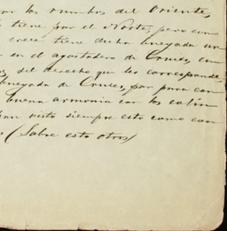 los rumbos del Oriente,
tiene por el Norte, pero con
crece tiene dicha anegada un
en el agostadero de Cruces, con
del derecho que les corresponde
anegada de Cruces, por pura con
buena armonia con los colin
han visto siempre esto como con
(Sobre esto otros)